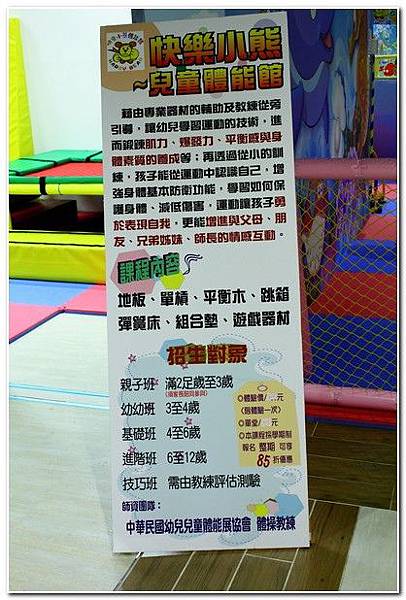 快樂小熊
~兒童體能館
藉由專業器材的輔助及教練從旁
引導，讓幼兒學習運動的技術，進
而鍛鍊肌力、爆發力、平衡感與身
體素質的養成等，再透過從小的訓
練，孩子能從運動中認識自己，增
強身體基本防衛功能，學習如何保
護身體、減低傷害，運動讓孩子勇
於表現自我，更能增進與父母、朋
友、兄弟姊妹、師長的情感互動。
課程內容
地板、單槓、平衡木、跳箱
彈簧床、組合墊、遊戲器材
招生對象
親子班 滿2足歲至3歲
幼幼班 3至4歲
基礎班 4至6歲
進階班 6至12歲
技巧班 需由教練評估測驗
◎體驗價/
(限體驗一次)
◎單堂/
◎本課程採學期制
報名 整期 可享
85折優惠
師資團隊：
中華民國幼兒兒童體能展協會 體操教練